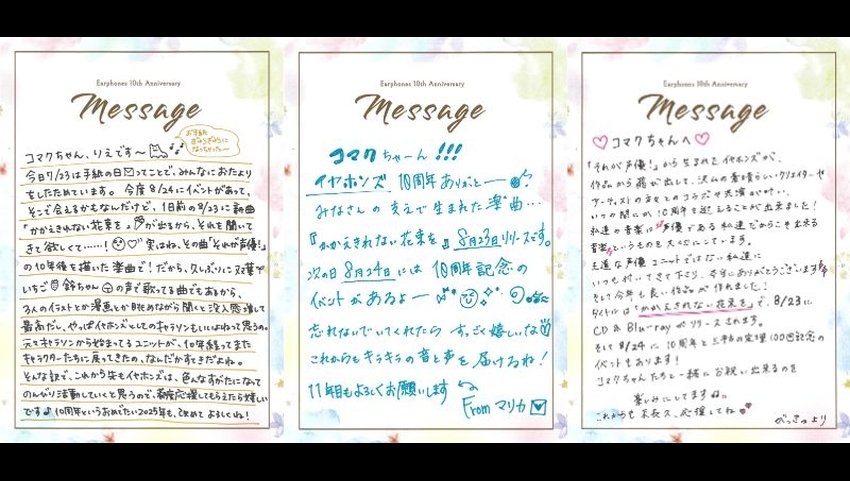 Earphones 10th Anniversary
Message
コマクちゃん、りえです〜
今日7/23は手紙の日ってことで、みんなにおたより
をしたためています。今度8/24にイベントがあって、
そこで会えるかもなんだけど、1日前の8/23に新曲
「かかえきれない花束を」が出るから、それを聞いて
きて欲しくて……!実はね、その曲「それが声優!」
の10年後を描いた楽曲で!だから、久しぶりに双葉
いちご鈴ちゃんの声で歌ってる曲でもあるから、
3人のイラストとか漫画とか眺めながら聞くと没入感増して
最高だし、やっぱイヤホンズとしてのキャラソンもいいよねって思うの。
元々キャラクターから始まってるユニットが、10年経ってまた
キャラクターたちに戻ってきたの、なんだかすてきだよね。
そんな訳で、これから先もイヤホンズは、色んなすがたになって
のんびり活動していくと思うので、適度応援してもらえたら嬉しい
です♪10周年というおめでたい2025年も、改めてよろしくね!
Earphones 10th Anniversary
Message
コマクちゃーん!!!
イヤホンズ、10周年ありがとーー!
みなさんの支えで生まれた楽曲…
『かかえきれない花束を』8月23日リリースです。
次の日8月24日には10周年記念の
イベントがあるよー
忘れないでいてくれたらすっごく嬉しいな
これからもキラキラの音と声を届けるね!
11年目もよろしくお願いします
From マリカ
Earphones 10th Anniversary
Message
♡コマクちゃんへ♡
「それが声優!」から生まれたイヤホンズが、
作品から飛び出して、沢山の素晴らしいクリエイターや
アーティストの方々とのコラボや共演が叶い、
いつの間にか10周年を迎えることが出来ました!
私達の音楽は声優である私達だからこそ出来る
音楽というものを大切にしています。
王道な声優ユニットではない私達に
いつも付いてきて下さり、本当にありがとうございます
そして今年も良い作品が作れました!
タイトルは「かかえきれない花束を」で、8/23に
CD & Blu-rayがリリースされます。
そして8/24に10周年と三平方の定理100回記念の
イベントもあります!
コマクちゃんたちと一緒にお祝い出来るのを
楽しみにしてますね。
これからも末長く、応援してね
がっきゅより